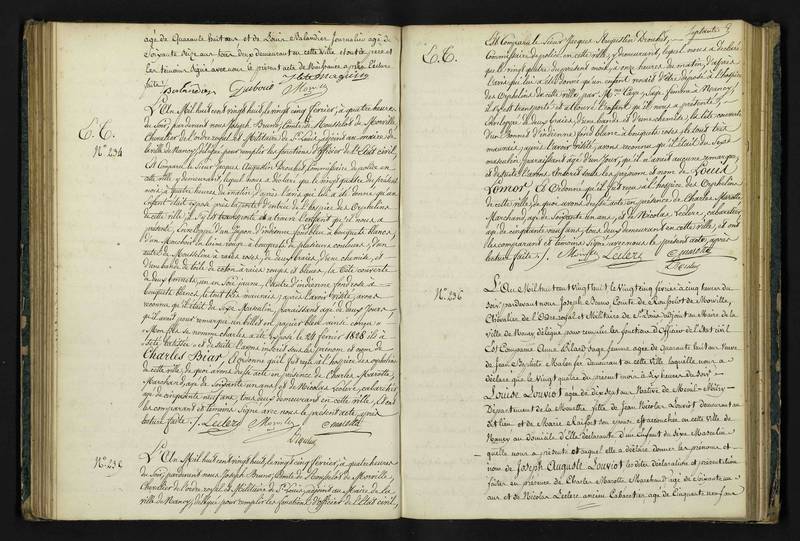 âgé de Quarante huit ans et de Louis Balandier journalier âgé de
Soixante seize ans tous deux demeurant en cette Ville et ont le père et
les témoins signé avec nous le présent acte de Naissance après lecture
faite ./.
Balandier Dubout Morville
E.E.
N° 234
L'An Mil huit cent vingt huit, le vingt cinq février, à quatre heures
du Soir, pardevant nous Joseph Bruno, Comte de Morville,
Chevalier de l'ordre royal et Militaire de St Louis, adjoint au maire de
la ville de Nancy, délégué pour remplir les fonctions d'officier de l'Etat civil,
Est Comparu le Sieur Jacques Augustin Drouhet, Commissaire de police en
cette ville, y demeurant, lequel nous a déclaré que le vingt quatre du présent
mois, à quatre heures du matin, d'après l'avis qui lui a été donné qu'un
Enfant était exposé près la porte d'entrée de l'hospice des Orphelins
de cette ville, il s'y est transporté, et a trouvé l'enfant qu'il nous a
présenté, Enveloppé d'un Jupon d'indienne fond bleu à bouquets blancs,
d'un Mouchoir en laine rouge à bouquets de plusieurs couleurs, d'un
autre de Mousseline à raies roses, de deux braies, d'une chemise, et
d'une bande de toile de coton à raies rouges et bleues, la tête couverte
de deux bonnets, un en Soie jaune, l'autre d'indienne fond rose à
bouquets blancs, le tout très mauvais ; après l'avoir visité, avons
reconnu qu'il était du Sexe Masculin, paraissant âgé de deux jours,
qu'il avait pour remarque un billet en papier bleu ainsi conçu "
" Mon fils se nomme charles a été exposé le 24 février 1828
et de suite l'avons inscrit sous les prénom et nom de
Charles Biar, Et ordonné qu'il fut remis à l'hospice des orphelins
de cette ville, de quoi avons dressé acte en présence de Charles Marotte,
Marchand, âgé de Soixante un ans, et de Nicolas Leclerc, cabaretier
âgé de cinquante neuf ans, tous deux demeurant en cette ville, et ont
les comparant et témoins Signé avec nous le présent acte, après
lecture faite ./. Leclerc Morville Marotte
Drouhet
N° 235
L'An Mil huit cent vingt huit, le vingt cinq février, à quatre heures
du Soir, pardevant nous Joseph Bruno, Comte de Morville,
Chevalier de l'ordre royal et Militaire de St Louis, adjoint au Maire de la
ville de Nancy, délégué pour remplir les fonctions d'officier de l'Etat civil,
Septante
E.E.
Est Comparu le Sieur Jacques Augustin Drouhet,
Commissaire de police en cette ville, y demeurant, lequel nous a déclaré
que le vingt quatre du présent mois, à onze heures du matin, d'après
l'avis qui lui a été donné qu'un enfant venait d'être déposé à l'hospice
des Orphelins de cette ville, par Mme Sage femme à Nancy,
il s'y est transporté et a trouvé l'enfant qu'il nous a présenté,
Enveloppé de deux braies, d'une bande, et d'une chemise, la tête couverte
d'un Bonnet d'indienne fond blanc à bouquets roses, le tout très
mauvais ; après l'avoir visité, avons reconnu qu'il était du Sexe
masculin, paraissant âgé d'un Jour, qu'il n'avait aucune remarque,
et de suite l'avons Inscrit sous les prénom et nom de Louis
Lemor, et Ordonné qu'il fut remis à l'hospice des Orphelins
de cette ville, de quoi avons dressé acte en présence de Charles Marotte,
Marchand, âgé de Soixante un ans, et de Nicolas Leclerc, cabaretier
âgé de cinquante neuf ans, tous deux demeurant en cette ville, et ont
les comparant et témoins Signé avec nous le présent acte, après
lecture faite ./. Morville Leclerc Marotte
Drouhet
N° 236
L'An Mil huit cent Vingt huit le Vingt cinq février à cinq heures du
Soir, pardevant nous Joseph Bruno, Comte de Morville,
Chevalier de l'Ordre royal et Militaire de St Louis adjoint au Maire de la
Ville de Nancy délégué pour remplir les fonctions d'Officier de l'Etat civil
Est Comparue Anne Pilard Sage femme agée de Quarante huit ans Veuve
de Jean demeurant en cette Ville laquelle nous a
déclaré que le Vingt quatre du présent mois à dix heures du Soir
Louise Louviot agée de dix sept ans Native de
Département de la Meurthe fille de Jean Nicolas Louviot demeurant au
dit lieu et de Marie est accouchée en cette Ville de
Nancy au domicile d'Elle déclarante d'un Enfant du Sexe Masculin
quelle nous a présenté et auquel elle a déclaré donner les prénoms et
nom de Joseph Auguste Louviot les dites déclaration et présentation
faites en présence de Charles Marotte Marchand âgé de Soixante un
ans et de Nicolas Leclerc ancien Cabaretier âgé de Cinquante neuf ans